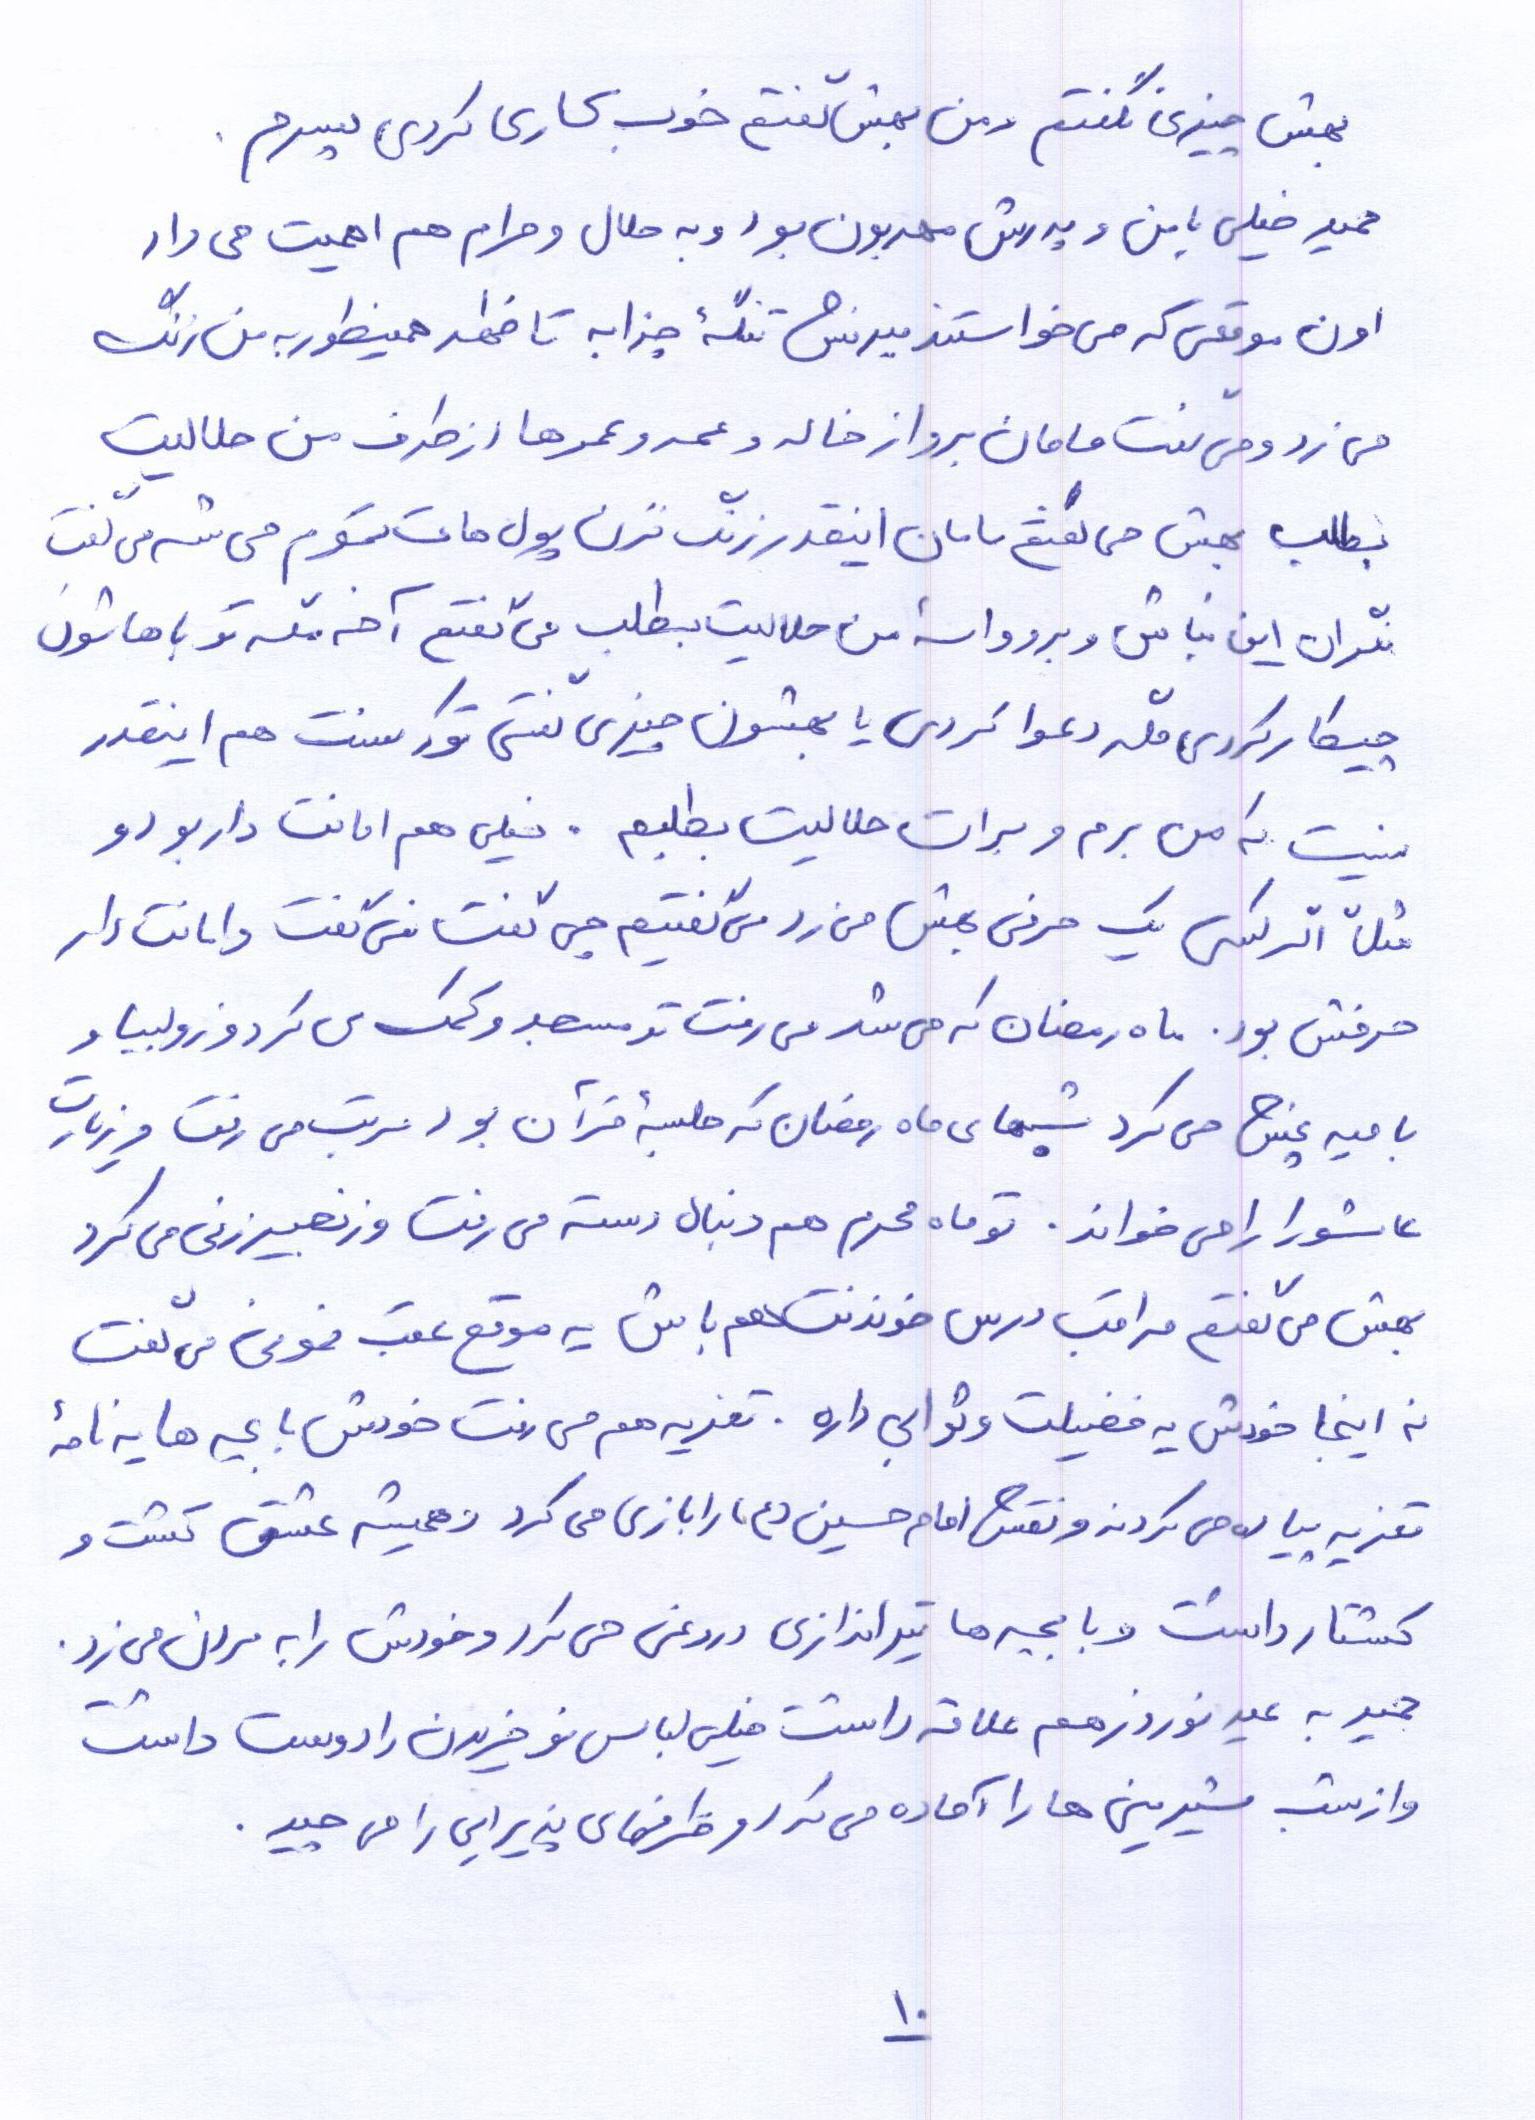 بهش چیزی نگفتم و من بهش گفتم خوب کاری کردی پسرم .
حمید خیلی با من و پدرش مهربون بود و به حلال و حرام هم اهمیت می داد
اون موقعی که می خواستند میرنش تنگهٔ چزابه تا ظهر همینطور به من زنگ
می زد و می گفت مامان برو از خاله و عمه و عموها از طرف من حلالیت
بطلب بهش می گفتم مامان اینقدر زنگ نزن پول هات تموم می شه می گفت
نگران این نباش و برو واسهٔ من حلالیت بطلب می گفتم آخه مگه تو باهاشون
چیکار کردی مگه دعوا کردی یا بهشون چیزی گفتی تو که سنت هم اینقدر
نیست که من برم و برات حلالیت بطلبم . خیلی هم امانت دار بود و
مثلاً اگر کسی یک حرفی بهش می زد می گفتیم چی گفت نمی گفت و امانت دار
حرفش بود . ماه رمضان که می شد می رفت تو مسجد و کمک می کرد و زولبیا و
بامیه پخش می کرد شبهای ماه رمضان که جلسهٔ قرآن بود مرتب می رفت و زیارت
عاشورا را می خواند . تو ماه محرم هم دنبال دسته می رفت و زنجیر زنی می کرد
بهش می گفتم مراقب درس خوندنت هم باش یه موقع عقب نمونی می گفت
نه اینجا خودش یه فضیلت و ثوابی داره . تعزیه هم می رفت خودش با بچه ها یه نامهٔ
تعزیه پیاده می کردند و نقش امام حسین (ع) را بازی می کرد و همیشه عشق کشت و
کشتار داشت و با بچه ها تیراندازی دروغی می کرد و خودش را به مردن می زد .
حمید به عید نوروز هم علاقه داشت خیلی لباس نو خریدن را دوست داشت
و از شب شیرینی ها را آماده می کرد و ظرفهای پذیرایی را می چید .
۱۰